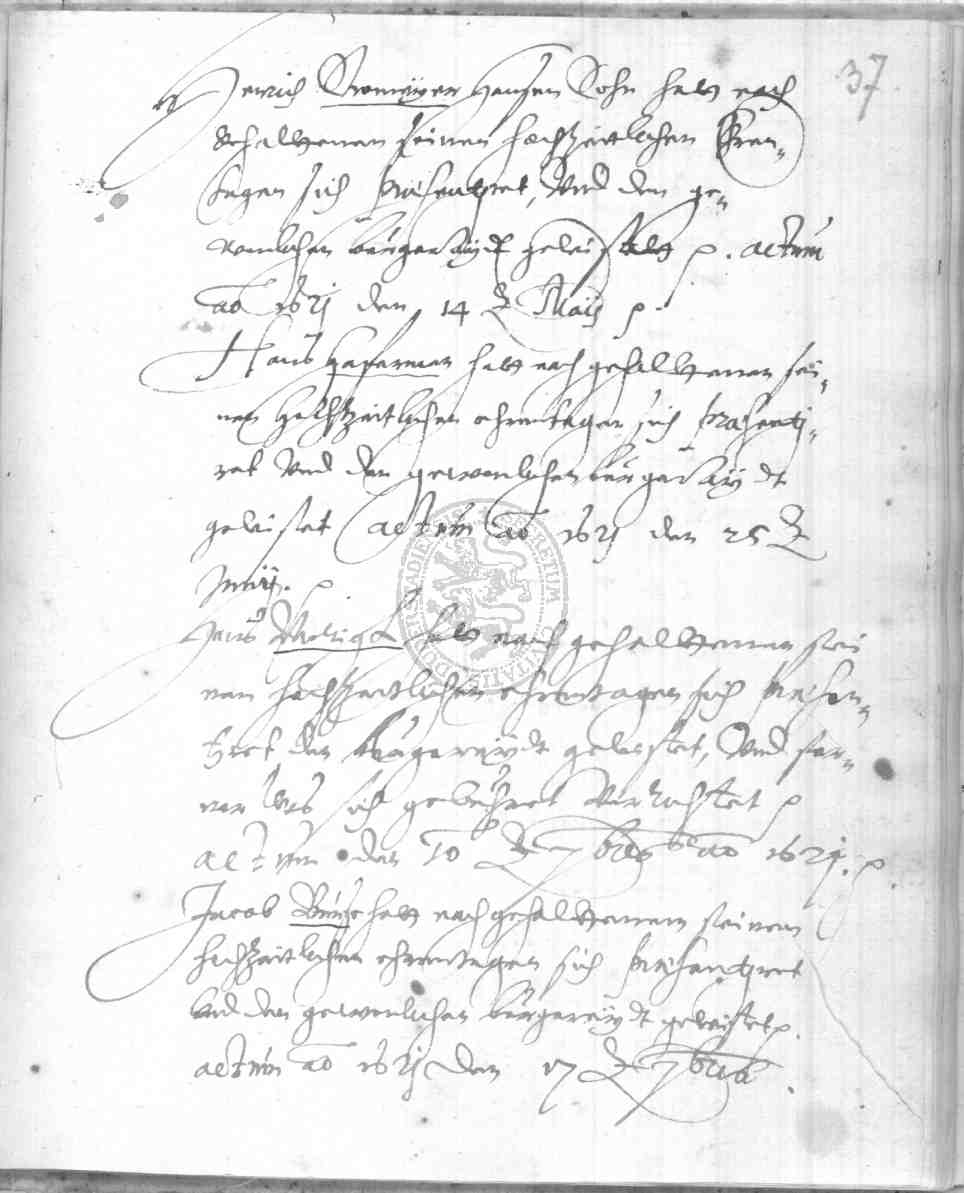 37
Henrich Stromeyer Hansen Sohn hatt nach
gehalttenen seinen hochzeittlichen Ehren=
tagen sich præsentiret, Vnd den ge=
wonlichen bürger aÿdt geleistett p. actum
ao 1621 den 14 Maij p.
Hans Hasarman hatt nach gehalttenen sei=
nen Hochzeitlichen ehrentagen sich præsenti=
ret Vnd den gewonlichen bürger aÿdt
geleistet actum ao 1621 den 25
Junij. p
Hans hatt nach gehalttenen sei
nen hochzeitlichen ehrentagen sich præsen=
tiret den bürgereydt geleistet, Vnd
was sich gebühret Verrichtet p
actum den 10 7bris ao 1621. p.
Jacob hatt nach gehalttenen seinen
hochzeitlichen ehrentagen sich præsentiret
vnd den gewonlichen bürgereydt geleistet p.
actum ao 1621 den 17 7bris.